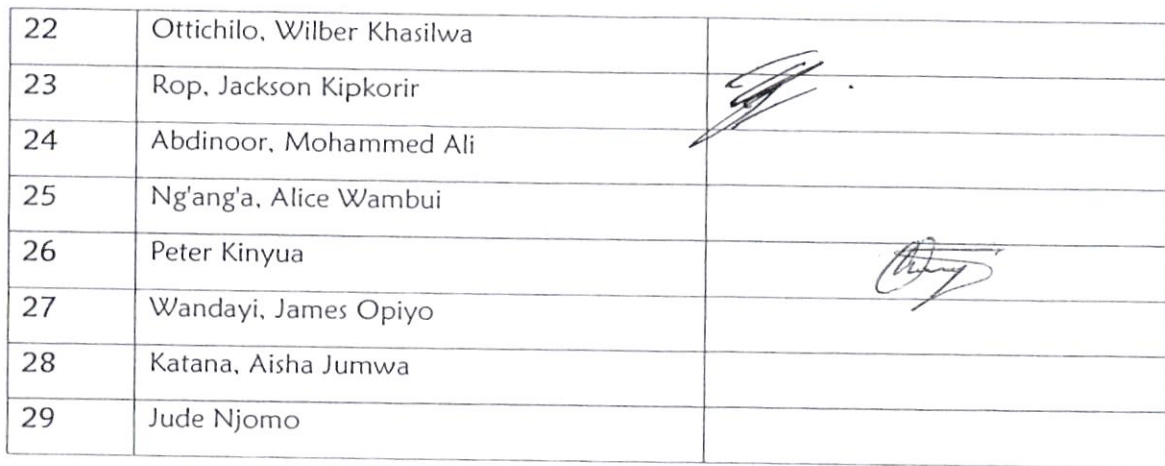 22 Ottichilo, Wilber Khasilwa
23 Rop, Jackson Kipkorir
24 Abdinoor, Mohammed Ali
25 Ng'ang'a, Alice Wambui
26 Peter Kinyua
27 Wandayi, James Opiyo
28 Katana, Aisha Jumwa
29 Jude Njomo